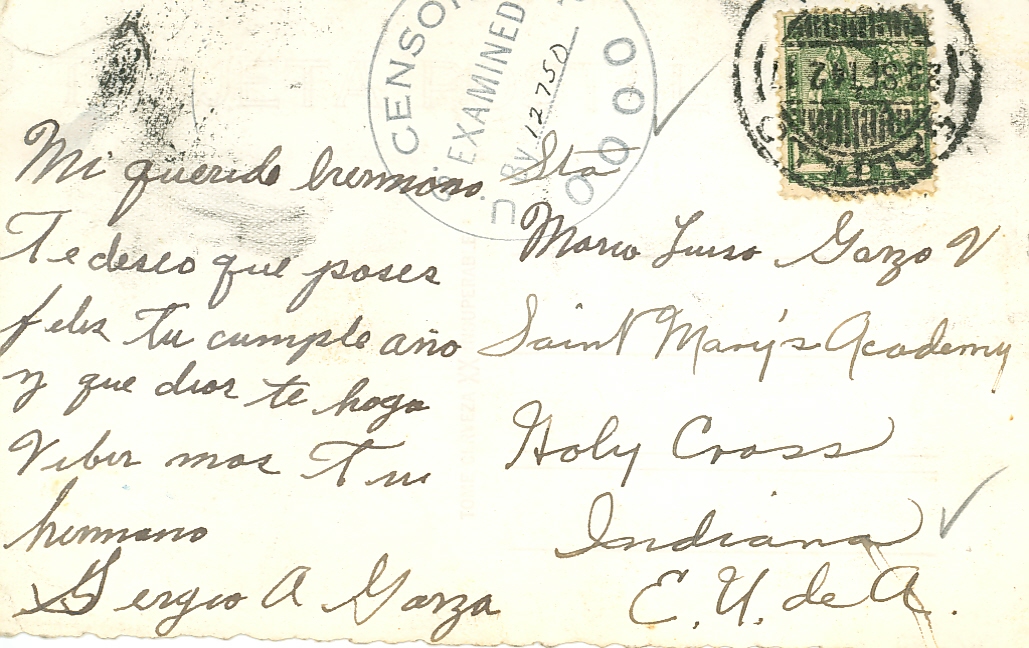 CENSOR
EXAMINED
BY 12750
U.S.
0000
23 SET 42
Mi querida hermana.
Te deseo que pases
felis tu cumple año
y que dios te haga
Vibir mas Tu
hermano
Sergio A Garza
Sta
Maria Luisa Garza V
Saint Mary's Academy
Holy Cross
Indiana
E. U. de A.